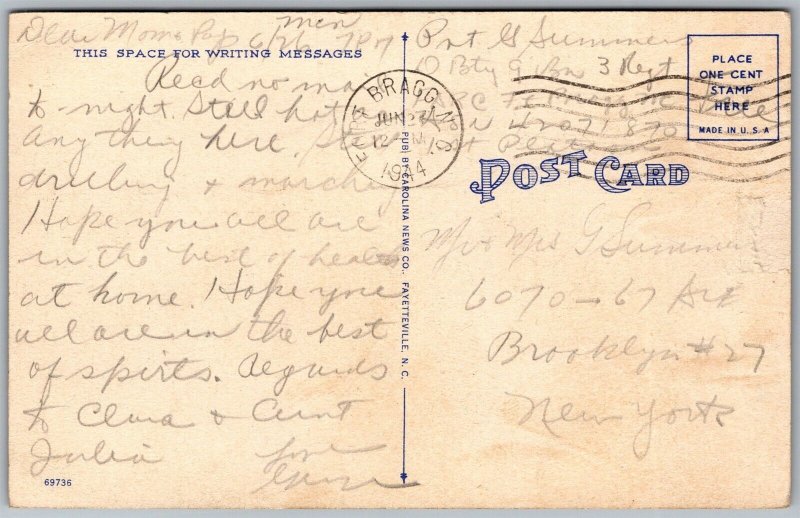 Dear Mom & Pop 6/26 Mon 7 PM
THIS SPACE FOR WRITING MESSAGES
Recd no mail
to night. Still hot
anything here. Still
drilling & marching
Hope you all are
in the best of health
at home. Hope you
all are in the best
of spirits. Regards
to Clara & Aunt
Julia Love
69736
PUB. BY CAROLINA NEWS CO., FAYETTEVILLE, N. C.
FORT BRAGG, N. C.
JUN 27
12 M
1944
Pvt G Summers
D Bty 9 Bn 3 Regt
Ft Bragg N C
Free
PLACE
ONE CENT
STAMP
HERE
MADE IN U.S.A
POST CARD
Mr & Mrs G Summers
6070-67 Ave
Brooklyn #27
New York